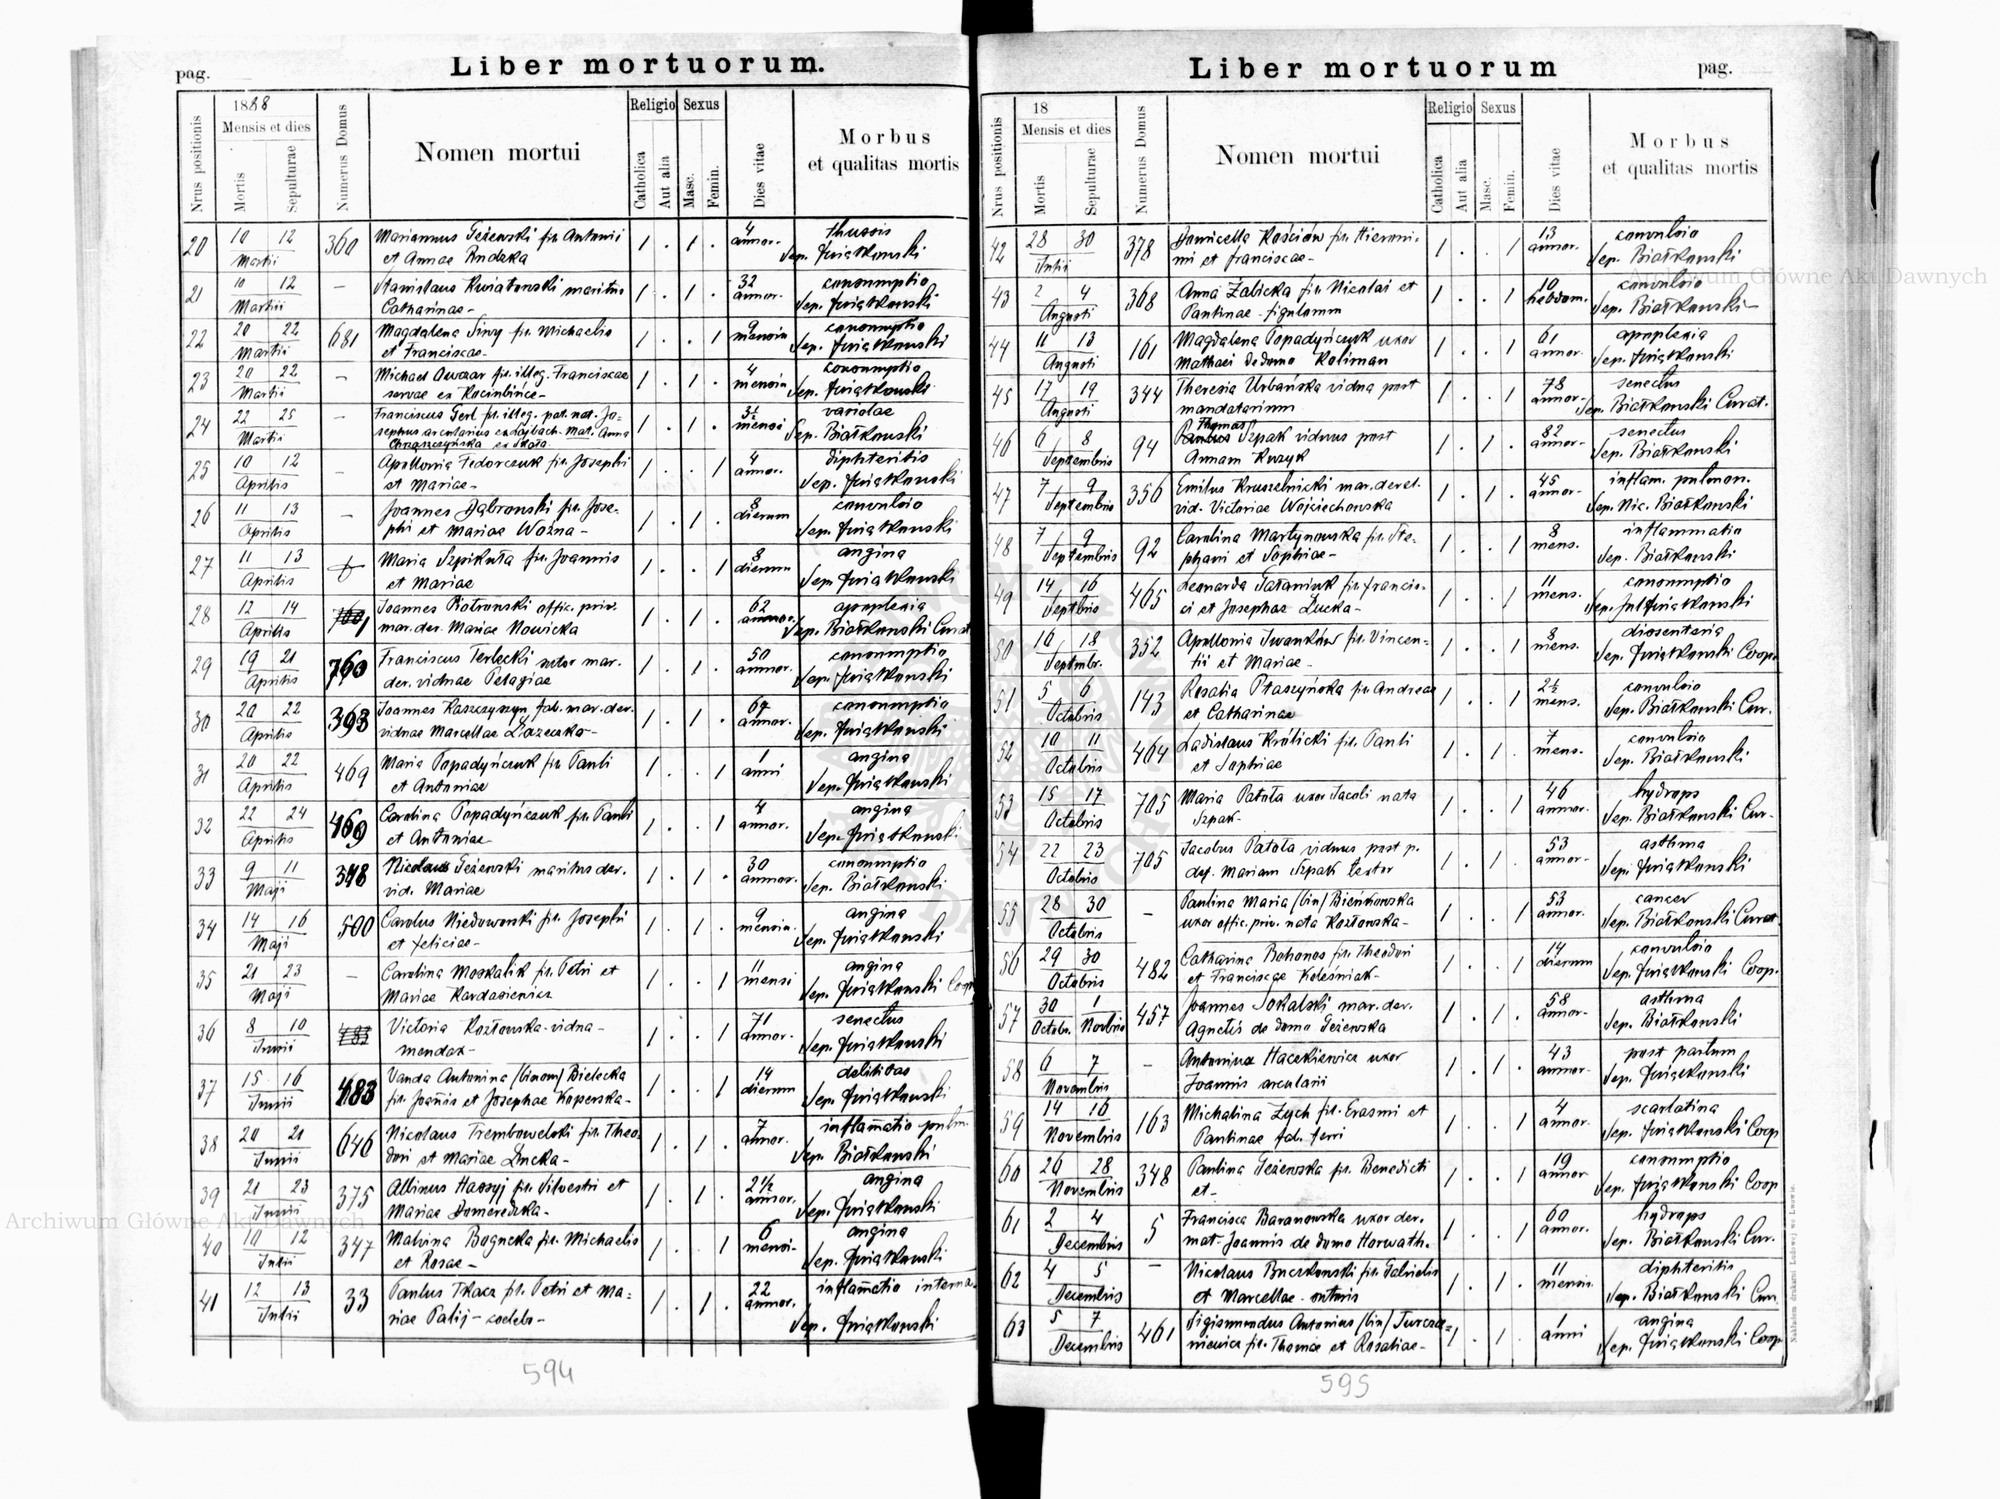 Liber mortuorum.
pag.
1888
Mensis et dies
Nrus positionis
Mortis
Sepulturae
Numerus Domus
Nomen mortui
Religio
Catholica
Aut alia
Sexus
Masc.
Femin.
Dies vitae
Morbus
et qualitas mortis
20 10 12 Martii 360 Mariannus Jeżewski fil. Antonii 1 . 1 . 4 annor. thussis
et Annae Sep. Kwiatkowski
21 10 12 Martii — Stanislaus Kwiatowski maritus 1 . 1 . 32 annor. consumptio
Catharinae - Sep. Kwiatkowski
22 20 22 Martii 681 Magdalena Siwy fil. Michaelis 1 . . 1 9 mensium consumptio
et Franciscae - Sep. Kwiatkowski
23 20 22 Martii — Michael Owczar fil. illeg. Franciscae 1 . 1 . 4 mensium consumptio
servae ex Kociubińce - Sep. Kwiatkowski
24 22 25 Martii — Franciscus Gerl fil. illeg. pat. nat. Jo-
sephus arcularius mat. Anna 1 . 1 . 3½ mensi variolae
Chrząszczyńska ex Skała Sep. Białkowski
25 10 12 Aprilis — Apollonia Fedorczuk fil. Josephi 1 . . 1 4 annor. diphteritis
et Mariae - Sep. Kwiatkowski
26 11 13 Aprilis — Joannes Dąbrowski fil. Jose- 1 . 1 . 8 dierum convulsio
phi et Mariae Woźna - Sep. Kwiatkowski
27 11 13 Aprilis Maria Szpikuła fil. Joannis 1 . . 1 8 dierum angina
et Mariae Sep. Kwiatkowski
28 12 14 Aprilis Joannes Piotrowski offic. priv. 1 . 1 . 62 annor. apoplexia
mar. der. Mariae Nowicka Sep. Białkowski Curat
29 19 21 Aprilis 760 Franciscus Terlecki sutor mar. 1 . 1 . 50 annor. consumptio
der. viduae Pelagiae Sep. Kwiatkowski
30 20 22 Aprilis 393 Joannes Kaszczyszyn fab. mar. der. 1 . 1 . 64 annor. consumptio
viduae Marcellae Łazeczko - Sep. Kwiatkowski
31 20 22 Aprilis 469 Maria Popadyńczuk fil. Pauli 1 . . 1 1 anni angina
et Antoniae Sep. Kwiatkowski
32 22 24 Aprilis 469 Carolina Popadyńczuk fil. Pauli 1 . . 1 4 annor. angina
et Antoniae Sep. Kwiatkowski
33 9 11 Maji 348 Nicolaus Jeżewski maritus der. 1 . 1 . 30 annor. consumptio
vid. Mariae Sep. Białkowski
34 14 16 Maji 500 Carolus Niedowowski fil. Josephi 1 . 1 . 9 mensium angina
et Feliciae - Sep. Kwiatkowski
35 21 23 Maji — Carolina Moskalik fil. Petri et 1 . . 1 11 mensi angina
Mariae Kardasiewicz Sep. Kwiatkowski Coop
36 8 10 Junii 483 Victoria Kozłowska - vidua - 1 . . 1 71 annor. senectus
mendax - Sep. Kwiatkowski
37 15 16 Junii 483 Vanda Antonina /binom/ Bielecka 1 . . 1 14 dierum debilitas
fil. Joannis et Josephae Koperska - Sep. Kwiatkowski
38 20 21 Junii 646 Nicolaus Trembowelski fil. Theo- 1 . 1 . 7 annor. inflamatio pulm.
dori et Mariae Łucka - Sep. Białkowski
39 21 23 Junii 375 Albinus Hassyj fil. Silvestri et 1 . 1 . 2½ annor. angina
Mariae Domeredzka - Sep. Kwiatkowski
40 10 12 Julii 347 Malvina Bognecka fil. Michaelis 1 . . 1 6 mensi- angina
et Rosae - Sep. Kwiatkowski
41 12 13 Julii 33 Paulus Tkacz fil. Petri et Ma= 1 . 1 . 22 annor. inflamatio interna
riae Palij - coelebs - Sep. Kwiatkowski
594
Liber mortuorum
pag.
18
Mensis et dies
Nrus positionis
Mortis
Sepulturae
Numerus Domus
Nomen mortui
Religio
Catholica
Aut alia
Sexus
Masc.
Femin.
Dies vitae
Morbus
et qualitas mortis
42 28 30 Julii 378 Dominicella Kościów fil. Hieroni- 1 . . 1 13 annor. convulsio
mi et Franciscae - Sep. Białkowski
43 2 4 Augusti 368 Anna Zalicka fil. Nicolai et 1 . . 1 10 hebdom. convulsio
Paulinae - figulorum Sep. Białkowski -
44 11 13 Augusti 161 Magdalena Popadyńczuk uxor 1 . . 1 61 annor. apoplexia
Mathaei de domo Koliman Sep. Kwiatkowski
45 17 19 Augusti 344 Theresia Urbańska vidua post 1 . . 1 78 annor. senectus
mandatarium Sep. Białkowski Curat.
46 6 8 Septembris 94 Thomas Szpak viduus post 1 . 1 . 82 annor. senectus
Annam Kuzyk Sep. Białkowski
47 7 9 Septembris 356 Emilus Kruszelnicki mar. derel. 1 . 1 . 45 annor. inflam. pulmon.
vid. Victoriae Wojciechowska Sep. Nic. Białkowski
48 7 9 Septembris 92 Carolina Martynowska fil. Ste- 1 . . 1 8 mens. inflammatio
phani et Sophiae - Sep. Białkowski
49 14 16 Septbris 465 Leonarda Tataniuk fil. Francis- 1 . . 1 11 mens. consumptio
ci et Josephae Łucka - Sep. Jul. Kwiatkowski
50 16 18 Septembr. 352 Apollonia Iwanków fil. Vincen- 1 . . 1 8 mens. dissenteria
tii et Mariae - Sep. Kwiatkowski Coop.
51 5 6 Octobris 143 Rosalia Ptaszyńska fil. Andreae 1 . . 1 2½ mens. convulsio
et Catharinae Sep. Białkowski Cur.
52 10 11 Octobris 464 Ladislaus Królicki fil. Pauli 1 . 1 . 7 mens. convulsio
et Sophiae Sep. Białkowski
53 15 17 Octobris 705 Maria Patoła uxor Jacobi nata 1 . . 1 46 annor. hydrops
Szpak - Sep. Białkowski Cur-
54 22 23 Octobris 705 Jacobus Patoła viduus post p. 1 . 1 . 53 annor. asthma
def. Mariam Szpak textor Sep. Kwiatkowski
55 28 30 Octobris — Paulina Maria /bin/ Bieńkowska 1 . . 1 53 annor. cancer
uxor offic. priv. nata Kozłowska - Sep. Białkowski Curat.
56 29 30 Octobris 482 Catharina Bohonos fil. Theodori 1 . . 1 14 dierum convulsio
et Franciscae Koleśniak - Sep. Kwiatkowski Coop.
57 30 1 Octobr. Novbris 457 Joannes Sokalski mar. der. 1 . 1 . 58 annor. asthma
Agnetis de domo Jeżewska Sep. Białkowski
58 6 7 Novembris — Antonina Hackiewicz uxor 1 . 1 . 43 annor. post partum
Joannis arcularii Sep. Kwiatkowski
59 14 16 Novembris 163 Michalina Zych fil. Erasmi et 1 . . 1 4 annor. scarlatina
Paulinae fab. ferri Sep. Kwiatkowski Coop
60 26 28 Novembris 348 Paulina Jeżewska fil. Benedicti 1 . . 1 19 annor consumptio
et - Sep. Kwiatkowski Coop
61 2 4 Decembris 5 Francisca Baranowska uxor der. 1 . . 1 60 annor. hydrops
mat. Joannis de domo Horwath. Sep. Białkowski Cur.
62 4 5 Decembris — Nicolaus Buczkowski fil. Gabrielis 1 . 1 . 11 mensium diphteritis
et Marcellae - sutoris Sep. Białkowski Cur.
63 5 7 Decembris 461 Sigismundus Antonius /bin/ Turcza= 1 . 1 . 1 anni angina
niewicz fil. Thomae et Rosaliae - Sep. Kwiatkowski Coop
595
Nakładem drukarni Ludowej we Lwowie.
Archiwum Główne Akt Dawnych
Archiwum Główne Akt Dawnych